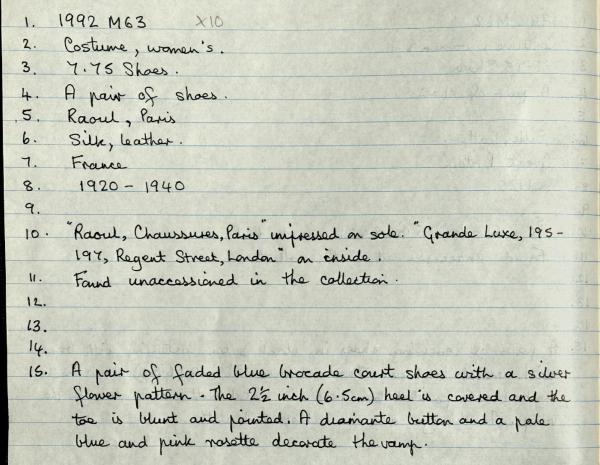 1. 1992 M63 X10
2. Costume, women's.
3. 7.75 Shoes.
4. A pair of shoes.
5. Raoul, Paris
6. Silk, leather.
7. France
8. 1920 - 1940
9.
10. "Raoul, Chaussures, Paris" impressed on sole. "Grande Luxe, 195-
197, Regent Street, London" on inside.
11. Found unaccessioned in the collection.
12.
13.
14.
15. A pair of faded blue brocade court shoes with a silver
flower pattern. The 2½ inch (6.5cm) heel is covered and the
toe is blunt and pointed. A diamante button and a pale
blue and pink rosette decorate the vamp.